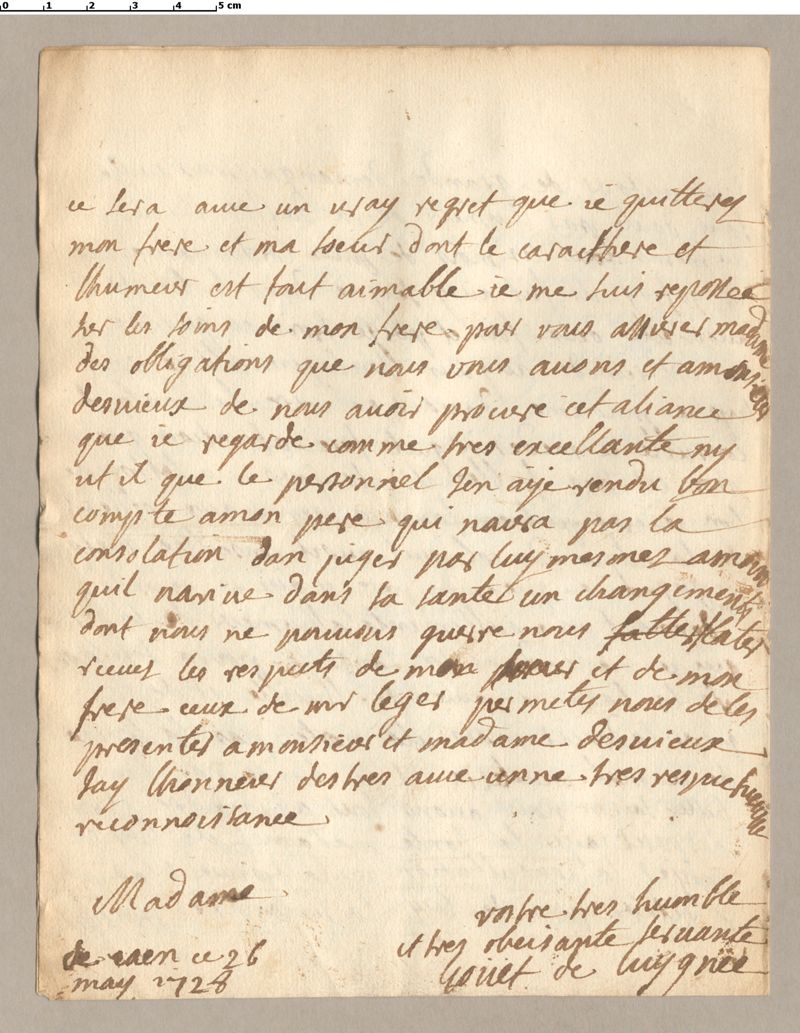 0 1 2 3 4 5 cm
ce sera avec un vray regret que ie quitterez
mon frere et ma soeur dont le caracthere et
lhumeur est tout aimable ie me suis repossee
ser les soins de mon frere pour vous assurer madame
des obligations que nous vous avons et amonsieur
desvieux de nous avoir procuré cet aliance
que ie regarde comme tres excellante ny
ut il que le personnel Jen aÿe rendu bon
compte amon pere qui naura pas la
consolation dan juger par luy mesmes amoin
quil narive dans sa santé un changement
dont nous ne pouvons guerre nous flater
recevez les respects de mon et de mon
frere ceux de mr leger permetes nous de les
presenter a monsieur et madame desvieux
Jay lhonneur destres avec unne tres respectueuse
reconnoissance
Madame
vostre tres humble
et tres obeisante servante
de caen ce 26
may 1728